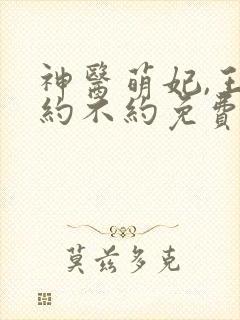 神醫萌妃,王
約不約免費
莫茲多克